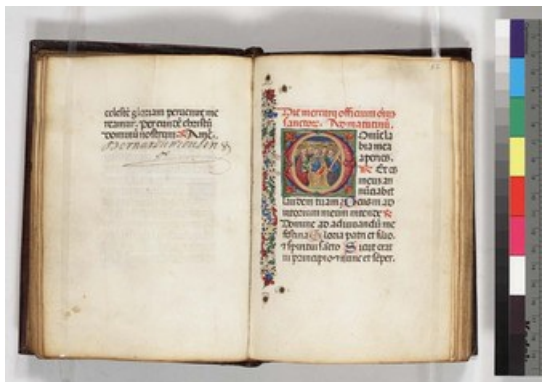 celestē gloriam peruenire me
reamur. Per eundē christū
dominū nostrum. Amē.
Die mercurij officium
sanctor. Ad matutinū.
Domīe la
bia mea
aperies.
Et os
meum an
nūciabit
laudem tuam Deus in ad
iutorium meum intende
Domine ad adiuuandū me
festina Gloria patri et filio.
et spiritui sācto Sicut erat
in principio et nunc et sēper.